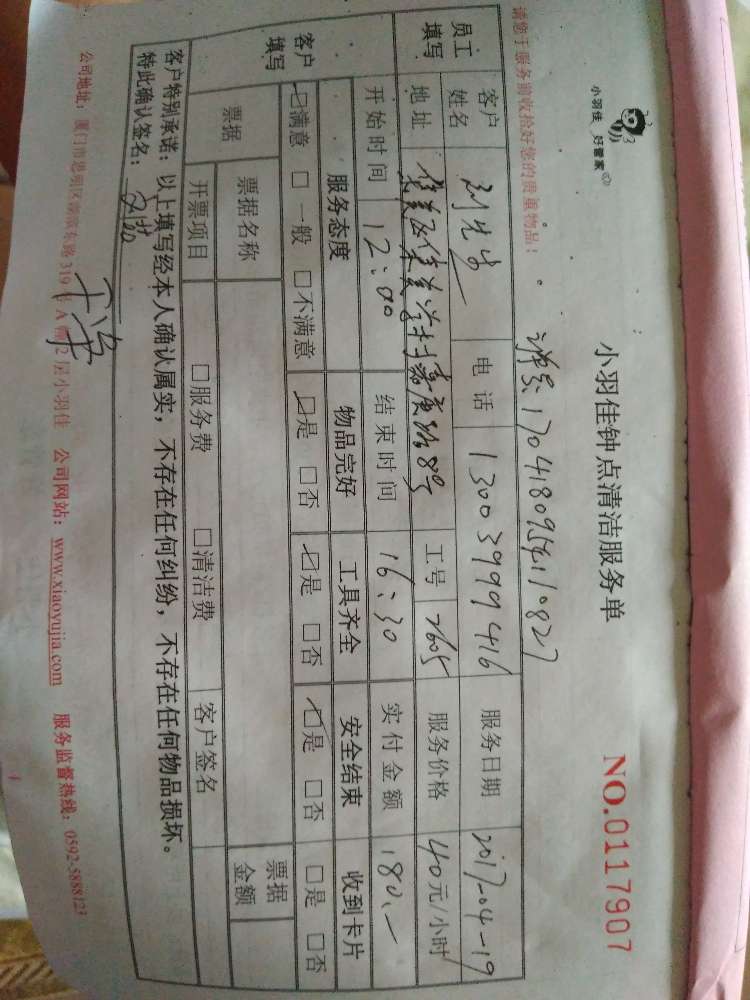 小羽佳 好管家
小羽佳钟点清洁服务单
NO.0117907
请您于服务前收拾好您的贵重物品!
1704180954110827
员工填写 客户姓名 刘先生 电话 13003999416 服务日期 2017-04-19
地址 集美区集美学村嘉庚路8号 工号 2605 服务价格 40元/小时
开始时间 12:00 结束时间 16:30 实付金额 180.—
客户填写 服务态度 物品完好 工具齐全 安全结束 收到卡片
☑满意 □一般 □不满意 ☑是 □否 ☑是 □否 ☑是 □否 □是 □否
票据 票据名称 票据金额
开票项目 □服务费 □清洁费 客户签名
客户特别承诺:以上填写经本人确认属实,不存在任何纠纷,不存在任何物品损坏。
特此确认签名:
公司地址:厦门市思明区 319号A幢2层小羽佳 公司网站:www.xiaoyujia.com 服务监督热线:0592-5888123